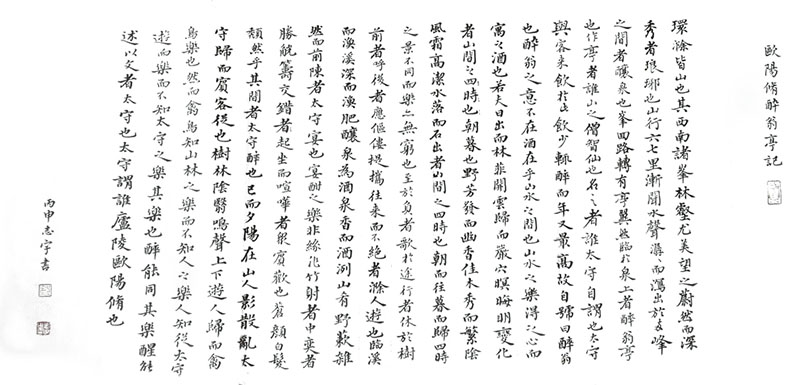 歐陽脩醉翁亭記
環滁皆山也其西南諸峯林壑尤美望之蔚然而深
秀者琅琊也山行六七里漸聞水聲潺々而瀉出於兩峰
之間者釀泉也峯回路轉有亭翼然臨於泉上者醉翁亭
也作亭者誰山之僧智仙也名之者誰太守自謂也太守
與客來飲於此飲少輒醉而年又最高故自號曰醉翁
也醉翁之意不在酒在乎山水之間也山水之樂得之心而
寓之酒也若夫日出而林霏開雲歸而巖穴暝晦明變化
者山間之四時也朝暮也野芳發而幽香佳木秀而繁陰
風霜高潔水落而石出者山間之四時也朝而往暮而歸四時
之景不同而樂亦無窮也至於負者歌於途行者休於樹
前者呼後者應傴僂提攜往來而不絕者滁人遊也臨溪
而漁溪深而漁肥釀泉為酒泉香而酒洌山肴野蔌雜
然而前陳者太守宴也宴酣之樂非絲非竹射者中奕者
勝觥籌交錯者起坐而喧嘩者眾賓歡也蒼顏白髮
頹然乎其間者太守醉也已而夕陽在山人影散亂太
守歸而賓客從也樹林陰翳鳴聲上下遊人歸而禽
鳥樂也然而禽鳥知山林之樂而不知人之樂人知從太守
遊而樂而不知太守之樂其樂也醉能同其樂醒能
述以文者太守也太守謂誰廬陵歐陽脩也
丙申志宇書